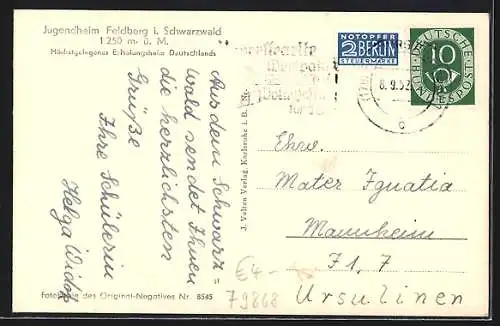 Jugendheim Feldberg i. Schwarzwald
1 250 m. ü. M.
Höchstgelegenes Erholungsheim Deutschlands
Aus dem Schwarz=
wald sendet Ihnen
die herzlichsten
Grüße
Ihre Schülerin
Helga
Fotokopie des Original-Negatives Nr. 8545
J. Velten Verlag, Karlsruhe i. B.
NOTOPFER
2 BERLIN
STEUERMARKE
DEUTSCHE
10
BUNDESPOST
8.9.52
Ehrw.
Mater Ignatia
Mannheim
J 1, 7
Ursulinen
€4-
79868